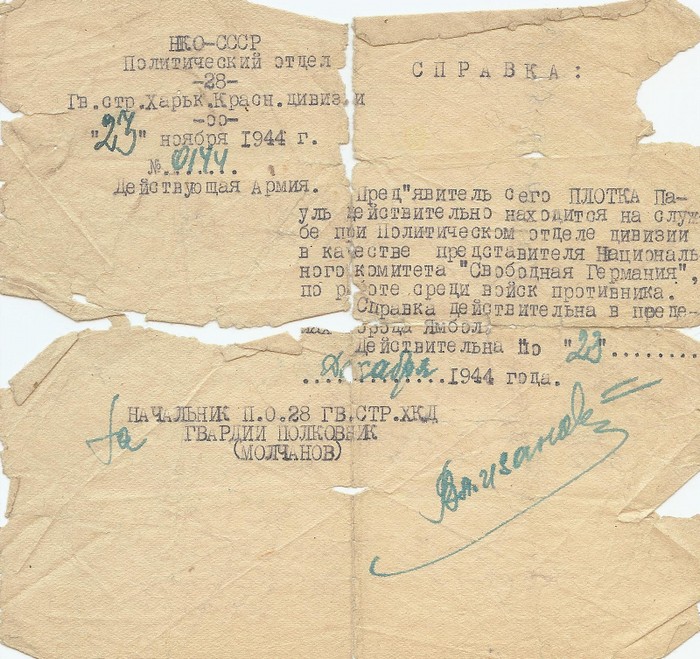 НКО-СССР
Политический отдел
-28-
Гв.стр.Харьк.Красн.дивизии
-оо-
"23" ноября 1944 г.
№.0144...
Действующая Армия.
СПРАВКА:
Пред"явитель сего ПЛОТКА Па-
уль действительно находится на служ
бе при Политическом отделе дивизии
в качестве представителя Националь
ного комитета "Свободная Германия",
по работе среди войск противника.
Справка действительна в преде-
лах города Ямбол.
Действительна по "23".........
Декабря 1944 года.
За НАЧАЛЬНИК П.О.28 ГВ.СТР.ХКД
ГВАРДИИ ПОЛКОВНИК
(МОЛЧАНОВ)